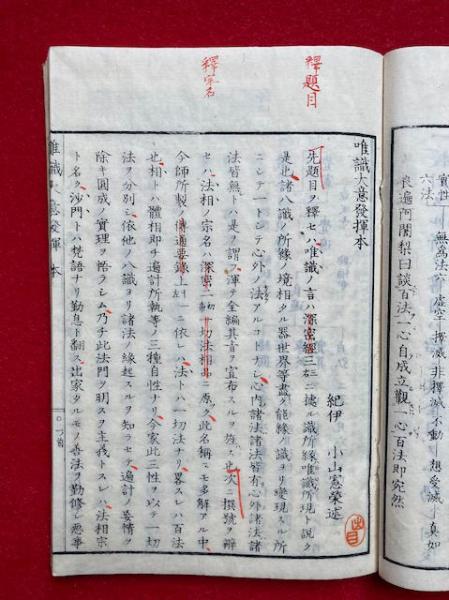 實性
六法
無為法六 虛空 擇滅 非擇滅 不動 想受滅 真如
良遍阿闍梨曰談百法一心自成立觀一心百法即宛然
釋題目
釋宗名
唯識大意發揮本
紀伊 小山憲榮述
先題目ヲ釋セハ唯識ノ言ハ深密經三ニ據ル識所緣唯識所現ト說ク
是也諸八識ノ所緣ノ境相タル器世界等盡ク能緣ノ識ヨリ變現スル所
ニシテ一トシテ心外ノ法アルコト切シ心内諸法諸法皆有心外諸法諸
法皆無トハ是ノ謂渾テ全編其言ヲ宣布スルヲ此次ニ撰號ヲ辯
セハ法相ノ宗名ハ深密二一切法相品ニ原ク此名稱ニモ多解アル中
今師所製ノ傳通要錄上ニ依レハ法トハ一切法ナリ畧スレハ百法
也相トハ體相即チ遍計所執等ノ三種自性ナリ今家此三性ヲ以テ一切
法ヲ分別シ依他ノ八識ヨリ諸法ノ緣起スルヲ知ラセテ遍計ノ妄情ヲ
除キ圓成ノ實理ヲ悟ラシム乃チ此法門ヲ明スヲ主義トスレハ法相宗
ト名ク沙門トハ梵語ナリ勤息ト翻ス出家タルモノ善法ヲ勤修シ惡事
唯識大意發揮 本